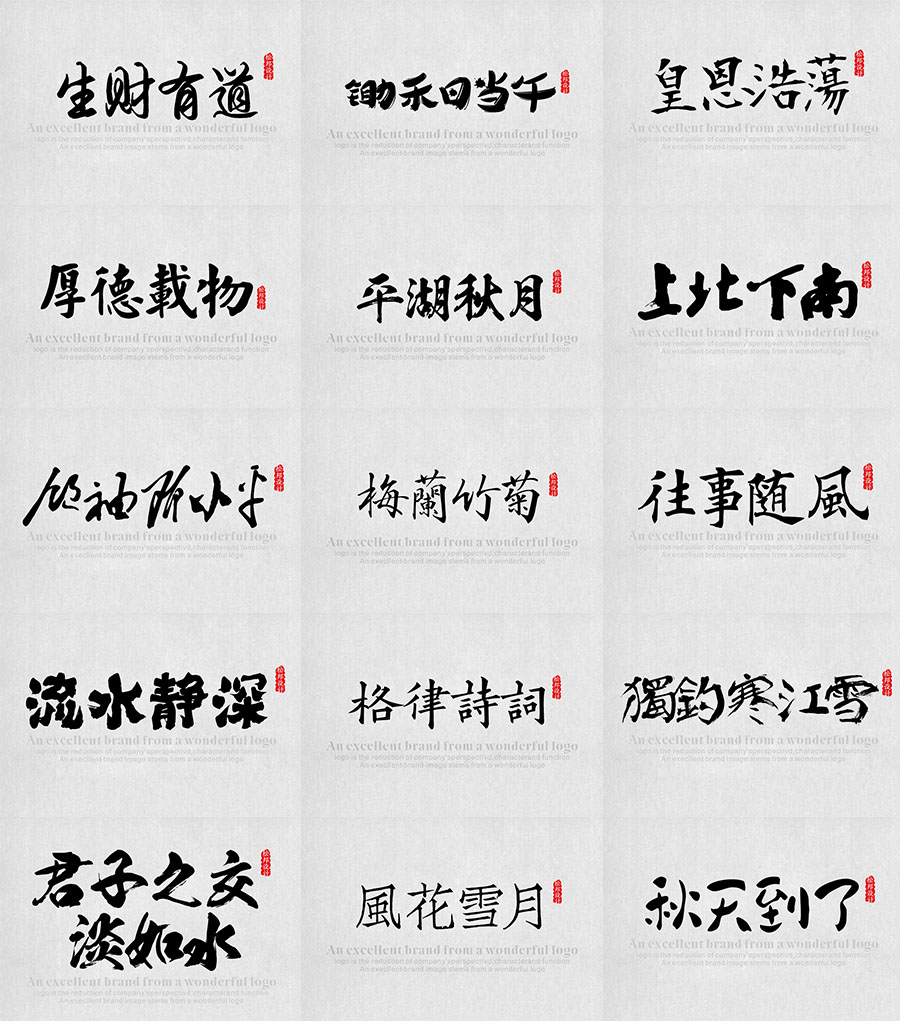 生财有道
An excellent brand from a wonderful logo
logo is the reduction of company'sperspective,characterand function
An execllent brand image stems from a wonderful logo
锄禾日当午
An excellent brand from a wonderful logo
logo is the reduction of company'sperspective,characterand function
An execllent brand image stems from a wonderful logo
皇恩浩蕩
An excellent brand from a wonderful logo
logo is the reduction of company'sperspective,characterand function
An execllent brand image stems from a wonderful logo
厚德載物
An excellent brand from a wonderful logo
logo is the reduction of company'sperspective,characterand function
An execllent brand image stems from a wonderful logo
平湖秋月
An excellent brand from a wonderful logo
logo is the reduction of company'sperspective,characterand function
An execllent brand image stems from a wonderful logo
上北下南
An excellent brand from a wonderful logo
logo is the reduction of company'sperspective,characterand function
An execllent brand image stems from a wonderful logo
领袖小平
An excellent brand from a wonderful logo
logo is the reduction of company'sperspective,characterand function
An execllent brand image stems from a wonderful logo
梅蘭竹菊
An excellent brand from a wonderful logo
logo is the reduction of company'sperspective,characterand function
An execllent brand image stems from a wonderful logo
往事随風
An excellent brand from a wonderful logo
logo is the reduction of company'sperspective,characterand function
An execllent brand image stems from a wonderful logo
流水静深
An excellent brand from a wonderful logo
logo is the reduction of company'sperspective,characterand function
An execllent brand image stems from a wonderful logo
格律詩詞
An excellent brand from a wonderful logo
logo is the reduction of company'sperspective,characterand function
An execllent brand image stems from a wonderful logo
獨釣寒江雪
An excellent brand from a wonderful logo
logo is the reduction of company'sperspective,characterand function
An execllent brand image stems from a wonderful logo
君子之交
淡如水
An excellent brand from a wonderful logo
logo is the reduction of company'sperspective,characterand function
An execllent brand image stems from a wonderful logo
風花雪月
An excellent brand from a wonderful logo
logo is the reduction of company'sperspective,characterand function
An execllent brand image stems from a wonderful logo
秋天到了
An excellent brand from a wonderful logo
logo is the reduction of company'sperspective,characterand function
An execllent brand image stems from a wonderful logo